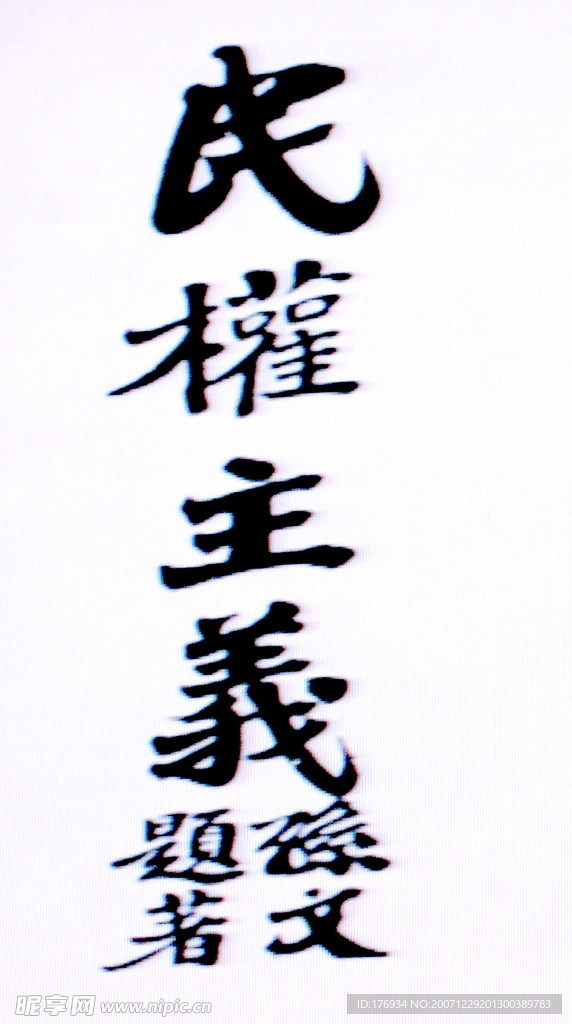 民權主義
孫文
題著
昵享网 www.nipic.cn
ID:176934 NO:20071229201300389783